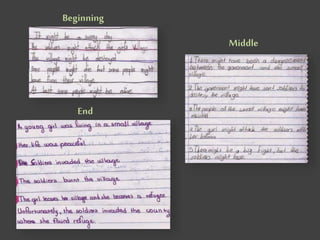 Beginning
It might be a sunny day.
The soldiers might attack the girls village.
The village might be destroyed.
Some people might die but some people might
leave from their village.
At last some people might be alive.
Middle
1. There might have been a disagreement
between the government and the small
village.
2. The government might have sent soldiers to
destroy the village.
3. The people of the small village might have
4. The girl might attack the soldiers with
5. There might be a big fight, but the
soldiers might have.
End
A young girl was living in a small village.
Her life was peaceful.
The soldiers invaded the village.
The soldiers burnt the village.
The girl leaves her village and she becomes a refugee.
Unfortunately, the soldiers invaded the country
where she found refuge.